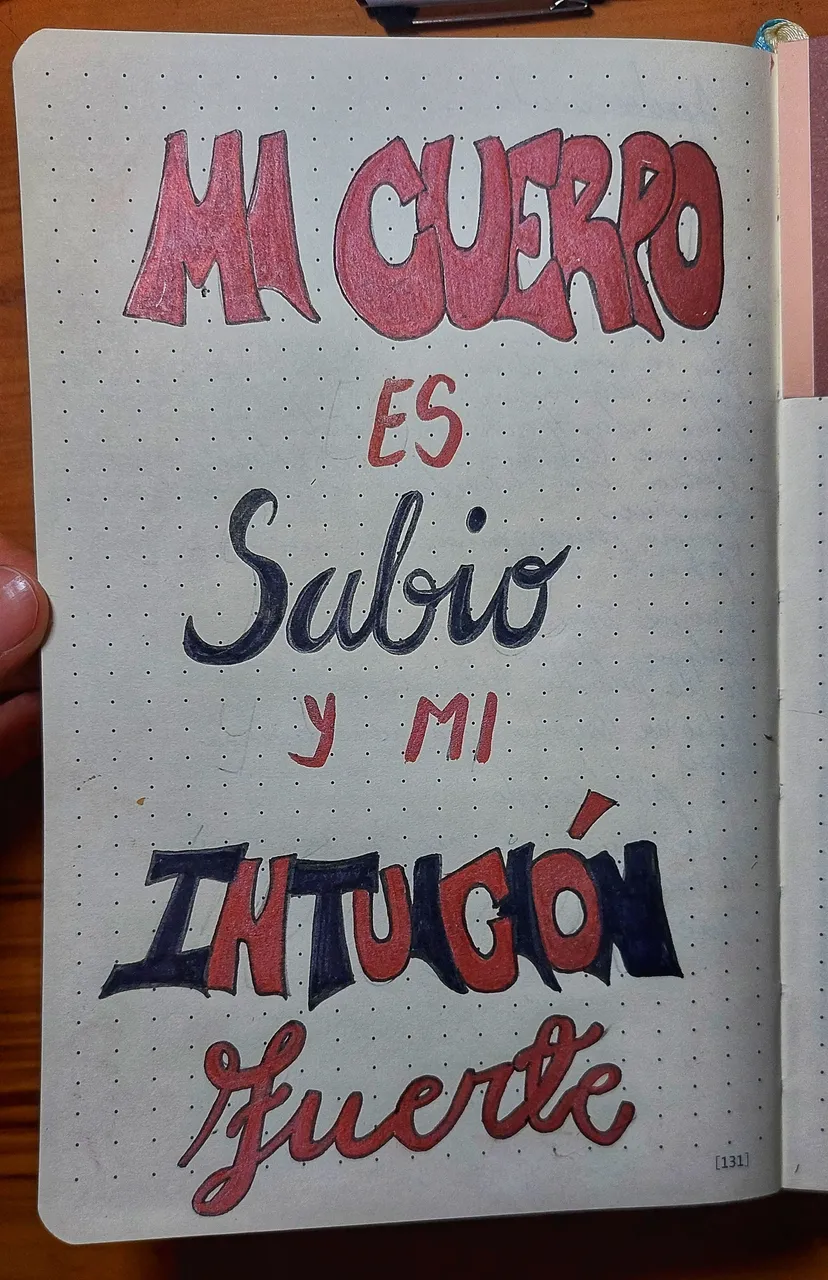 MI CUERPO
ES
Sabio
Y MI
INTUICIÓN
fuerte
[131]